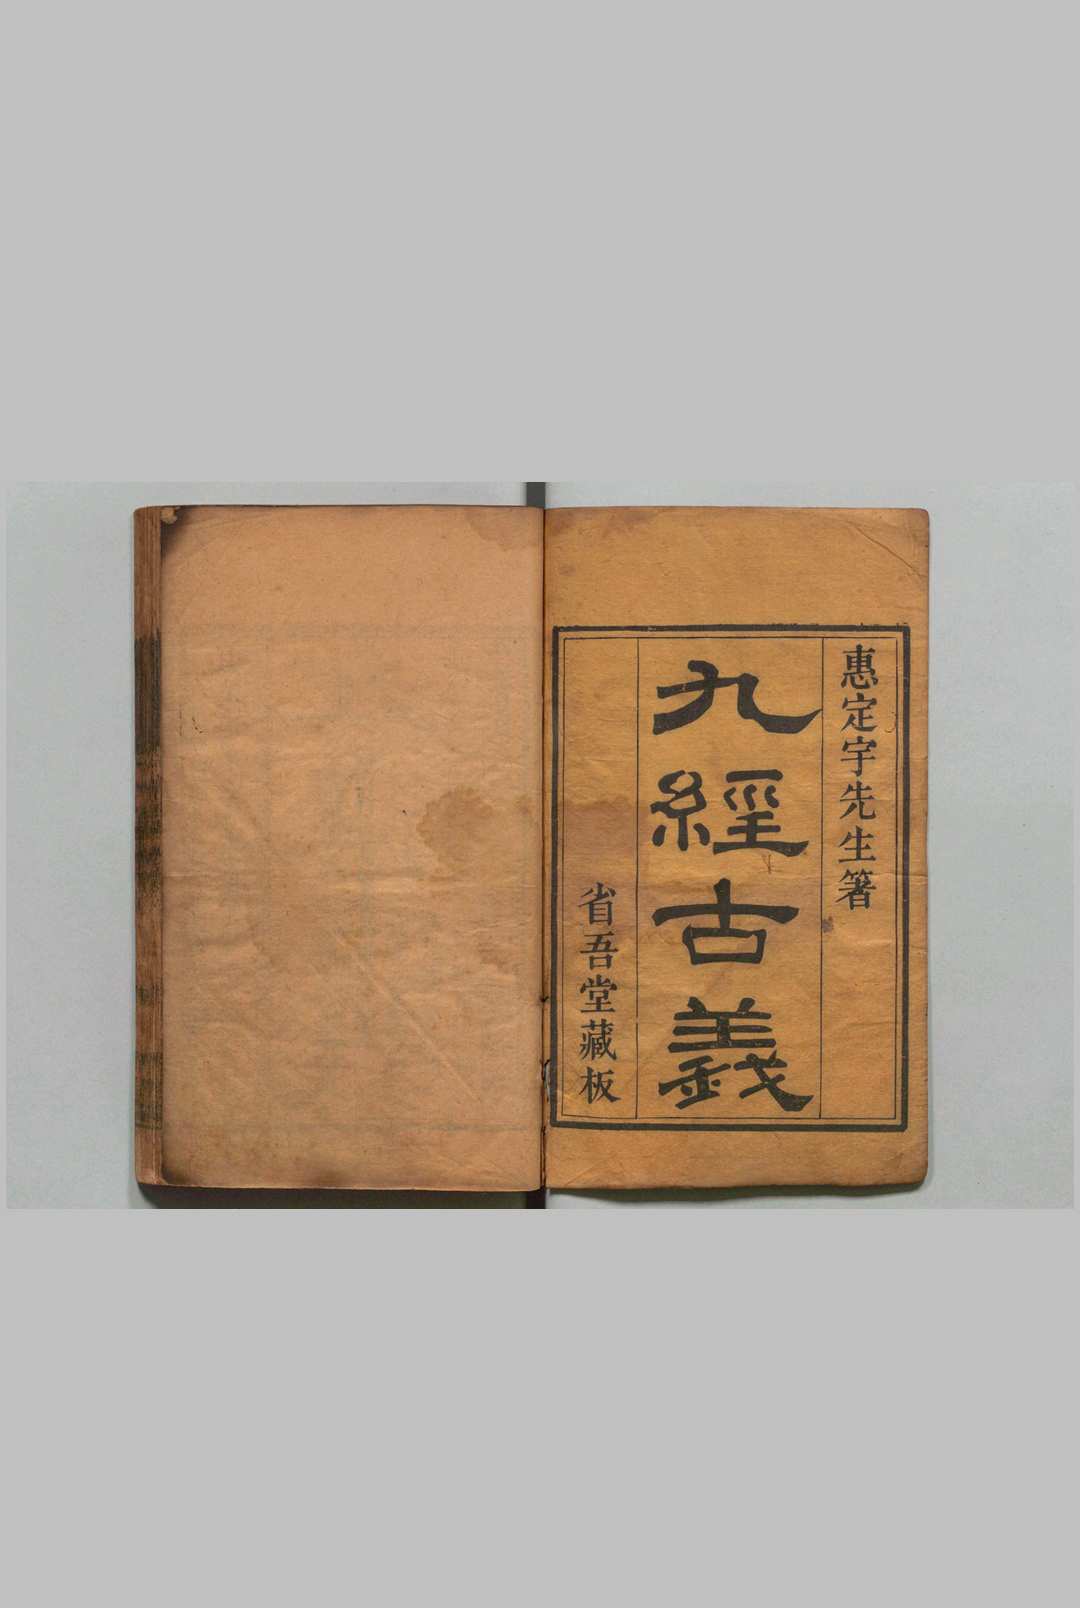 惠定宇先生箸
九經古義
省吾堂藏板